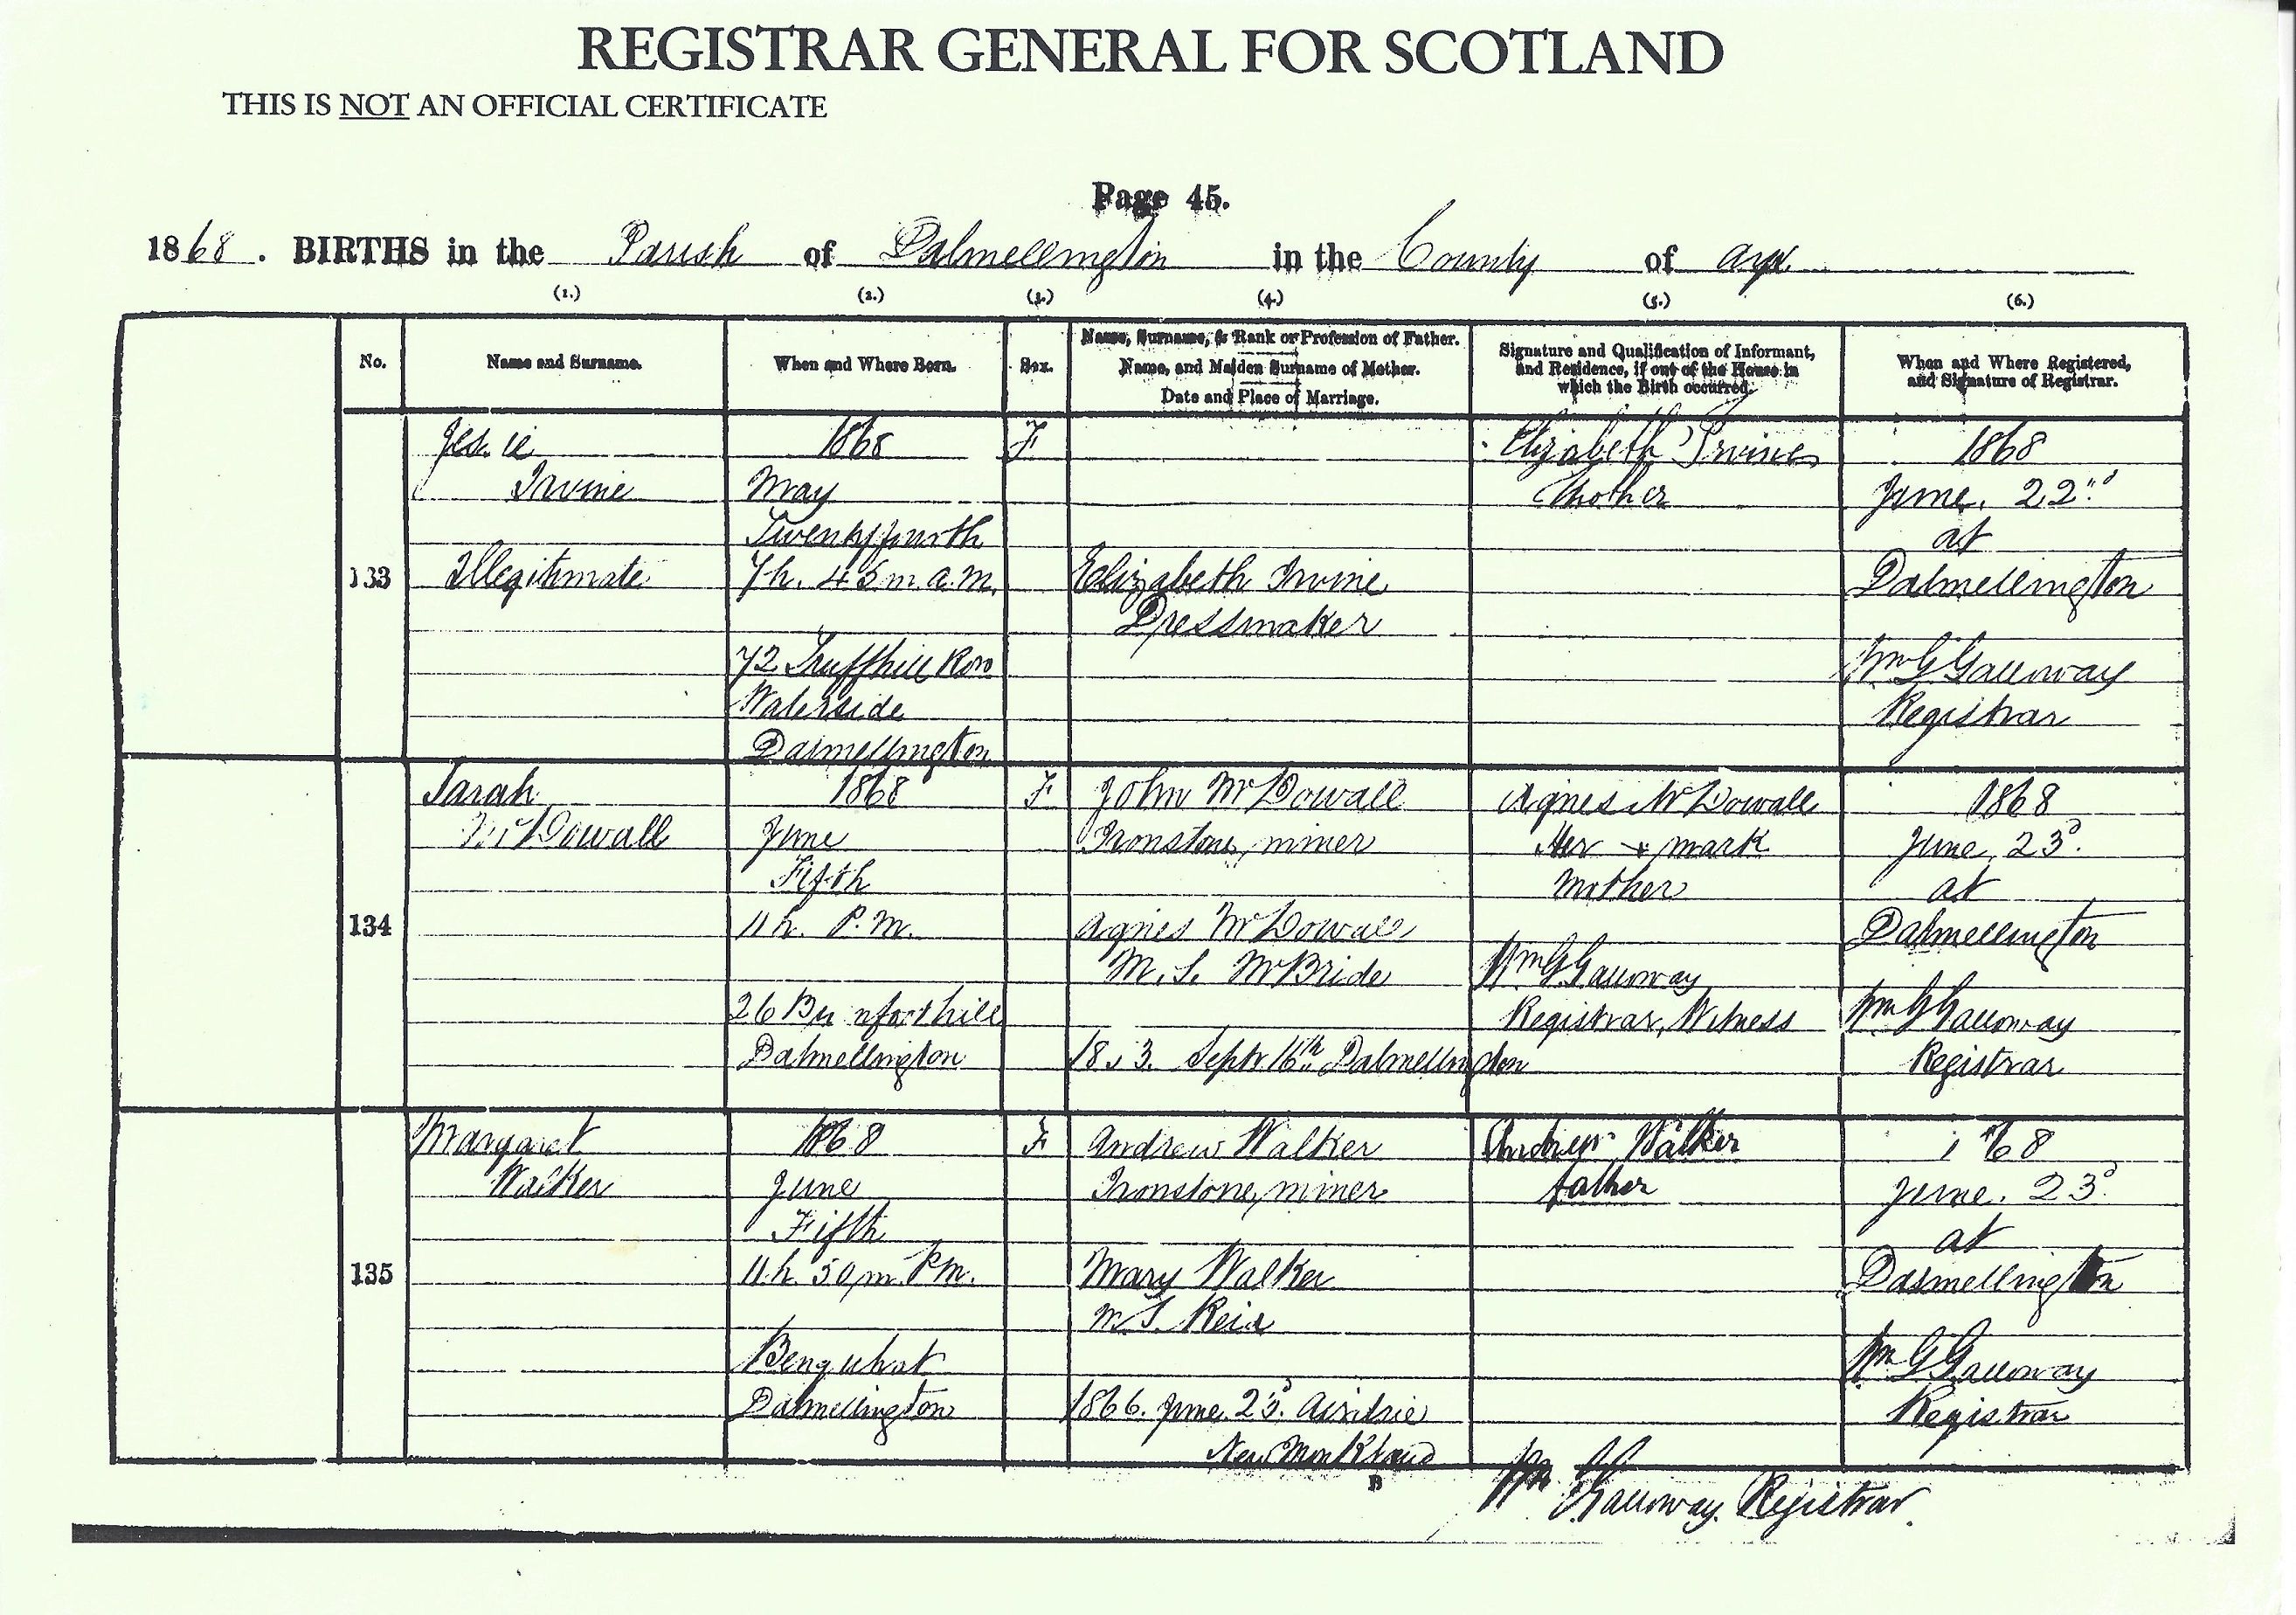 REGISTRAR GENERAL FOR SCOTLAND
THIS IS NOT AN OFFICIAL CERTIFICATE
Page 45.
1868. BIRTHS in the Parish of Dalmellington in the County of Ayr.
(1.) (2.) (3.) (4.) (5.) (6.)
No.
Name and Surname.
When and Where Born.
Sex.
Name, Surname, & Rank or Profession of Father.
Name, and Maiden Surname of Mother.
Date and Place of Marriage.
Signature and Qualification of Informant,
and Residence, if out of the House in
which the Birth occurred.
When and Where Registered,
and Signature of Registrar.
133
Jessie
Irvine
Illegitimate
1868
May
Twentyfourth
7h. 45m. a.m.
72 Truffhill Row
Waterside
Dalmellington
F
Elizabeth Irvine
Dressmaker
Elizabeth Irvine
Mother
1868
June. 22nd
at
Dalmellington
Wm G Galloway
Registrar
134
Sarah
McDowall
1868
June
Fifth
11h. P.M.
26
Dalmellington
F
John McDowall
Ironstone miner
Agnes McDowall
M.S. McBride
Septr. 16th Dalmellington
Agnes McDowall
Her x mark
Mother
Wm G Galloway
Registrar, Witness
1868
June, 23d.
at
Dalmellington
Wm G Galloway
Registrar
135
Margaret
Walker
1868
June
Fifth
11h 50m. P.M.
Benquhat
Dalmellington
F
Andrew Walker
Ironstone miner
Mary Walker
M.S. Reid
1866. June. Airdrie
New Monkland
Andrew Walker
father
1868
June. 23d.
at
Dalmellington
Wm G Galloway
Registrar
B
Wm G Galloway. Registrar.